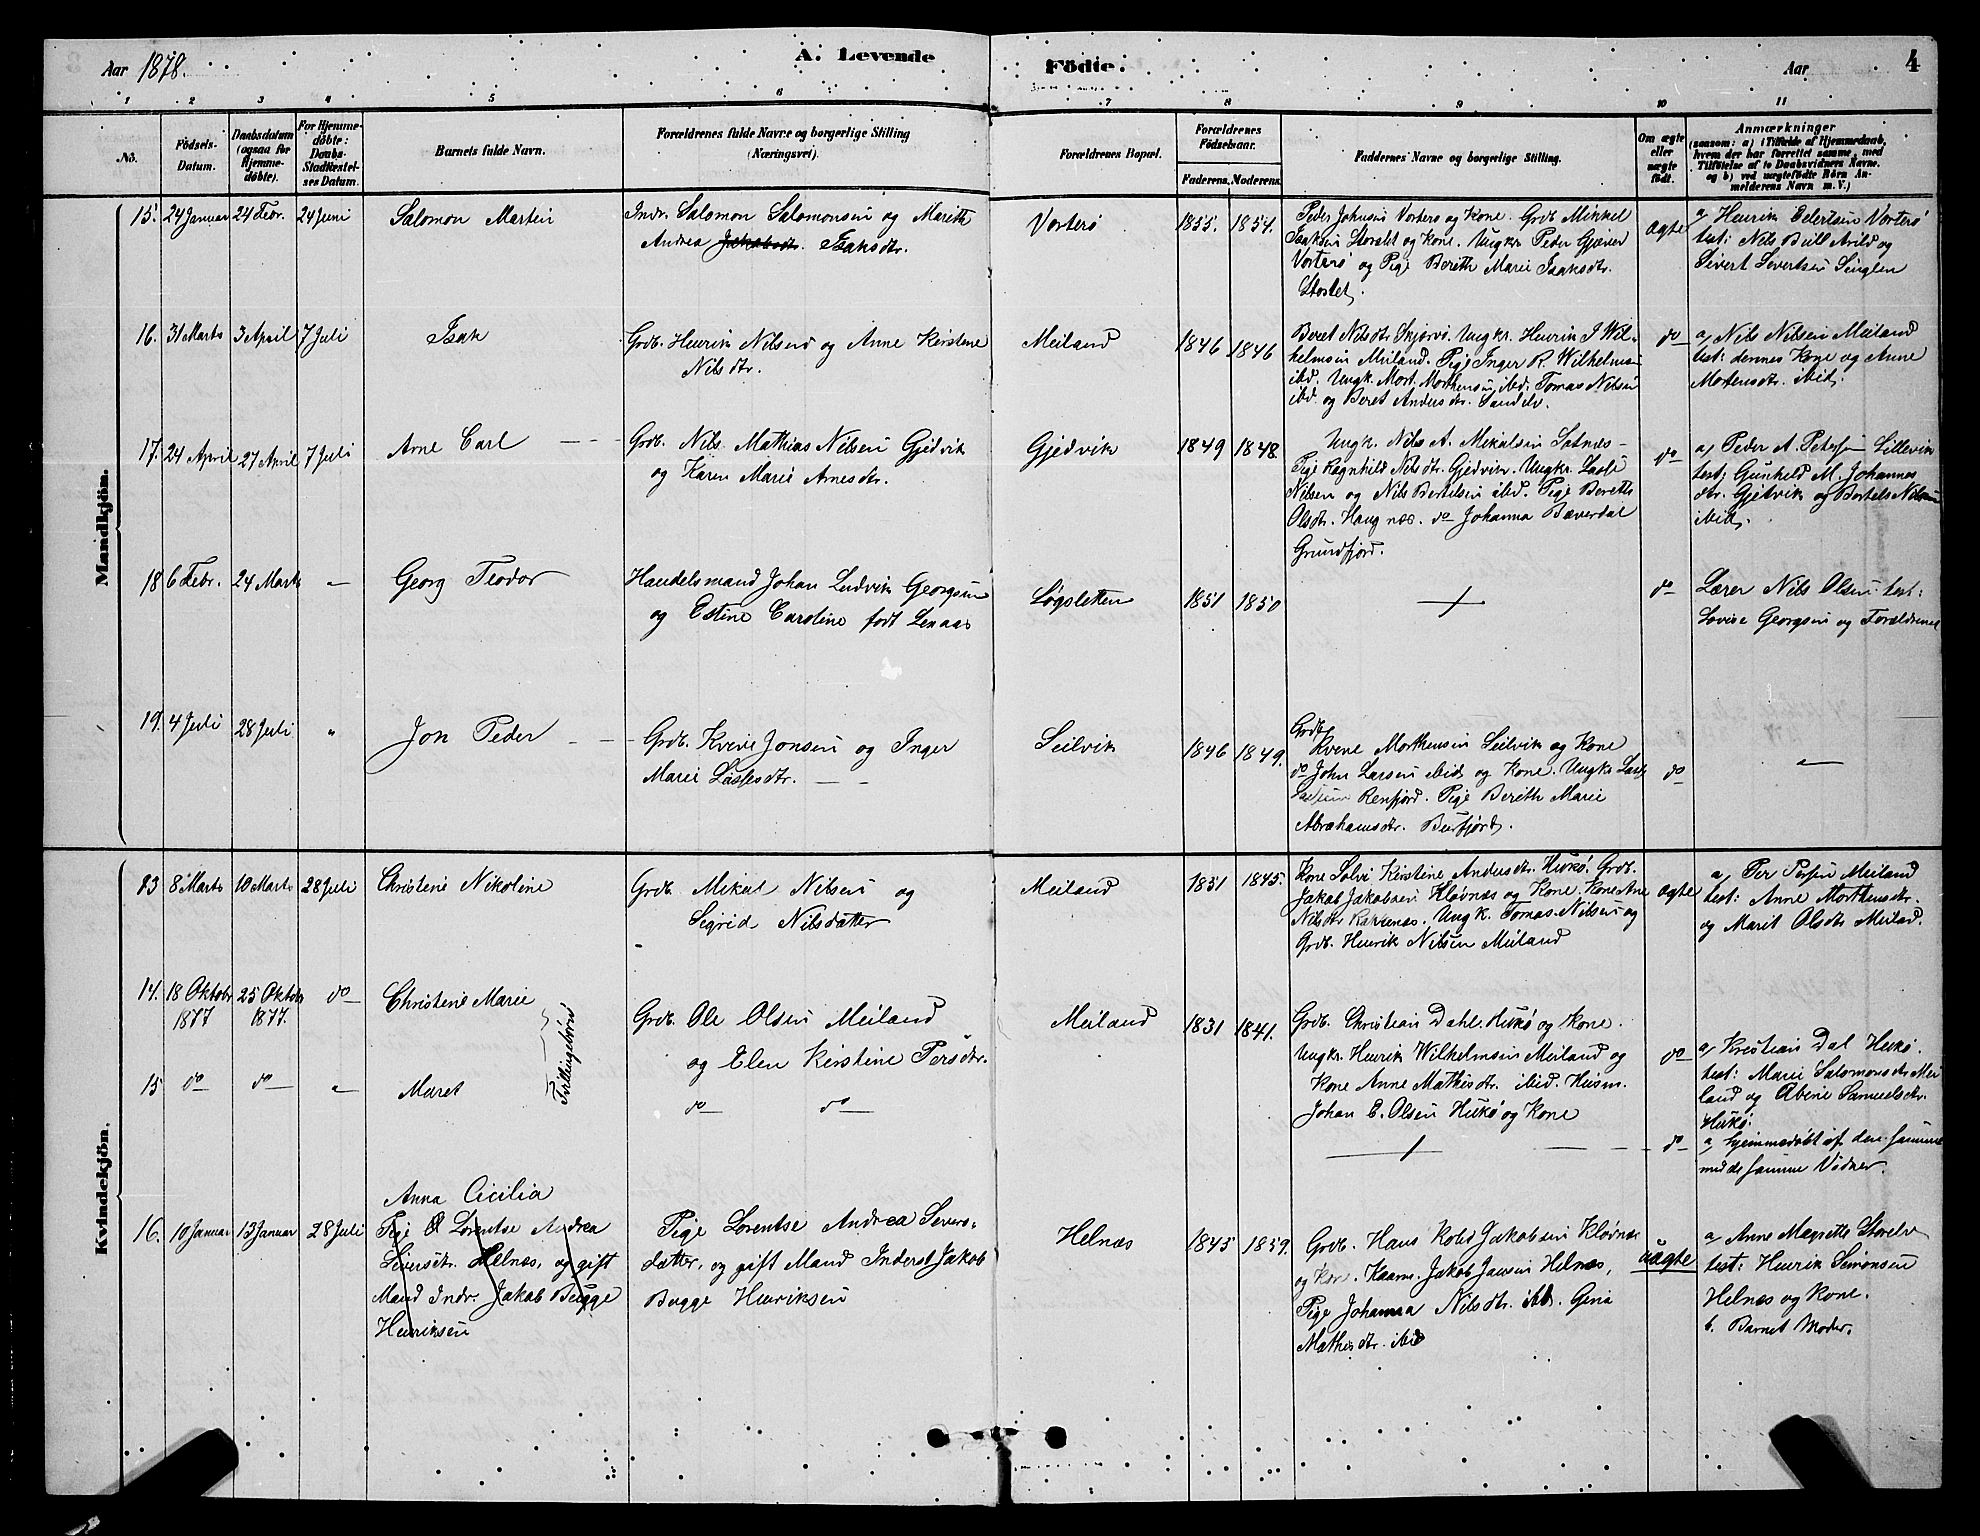 Aar 1878.
A. Levende
Födte.
Aar
4
1 2 3 4 5 6 7 8 9 10 11
No.
Födsels-
Datum.
Daabsdatum
(ogsaa for
Hjemme-
döbte).
For Hjemme-
döbte:
Daabs-
Stadfæstel-
ses Datum.
Barnets fulde Navn.
Forældrenes fulde Navne og borgerlige Stilling
(Næringsvei).
Forældrenes Bopæl.
Forældrenes
Födselsaar.
Faderens. Moderens.
Faddernes Navne og borgerlige Stilling.
Om ægte
eller
uægte
födt.
Anmærkninger
(saasom: a) i Tilfælde af Hjemmedaab,
hvem der har forrettet samme, med
Tilföielse af to Daabsvidners Navne,
og b) ved uægtefödte Börn An-
melderens Navn m. V.)
Mandkjön.
15. 24 Januar 24 Febr. 24 Juni
Salomon Martin
Indr. Salomon Salomonsen og Marith
Andrea Jakobsdtr. Isaksdtr.
Vorterø
1855. 1854.
Peder Johnsen Vorterø og Kone. Grdb. Mikkel
Isaksen Storslet og Kone. Ungkr. Peder Gjæver
Vorterø og Pige Bereth Marie Isaksdtr.
Storslet.
ægte
a, Henrik Eilertsen Vorterø
test: Nils Bull Arild og
Sivert Sivertsen Singlen
16. 31 Marts 3 April 7 Juli
Isak
Grdb. Henrik Nilsen og Anne Kirstine
Nilsdtr.
Meiland
1846 1846
Beret Nilsdtr. Skjervø. Ungkr. Henrik J Wil-
helmsen Meiland. Pige Inger R. Wilhelms-
ibd. Ungk. Mort. Morthensen ibd. Tomas Nilsen
ibd. og Beret Andersdtr. Sandelv.
do
a, Nils Nilsen Meiland
test: dennes Kone og Anne
Mortensdtr. ibid.
17. 24 April 27 April 7 Juli
Arne Carl
Grdb. Nils Mathias Nilsen Gjedvik
og Karen Marie Arnesdtr.
Gjedvik
1849 1848.
Ungk. Nils A. Mikalsen Latnæs-
Pige Ragnhild Nilsdtr. Gjedvik. Ungkr. Lasli
Nilsen og Nils Bertelsen ibd. Pige Bereth
Olsdtr. Haugnæs. do Johanna Bæverdal
Grundfjord.
do
a, Peder A. Petersen Lillevik
test: Gunhild M. Johannes
dtr. Gjedvik og Bertels Nilsen
ibid.
18 6 Febr. 24 Marts "
Georg Teodor
Handelsmand Johan Ludvik Georgsen
og Estine Caroline født Lenaas
Løgsletten
1851 1850
do
Lærer Nils Olsen test:
Lovise Georgsen og Forældrenes
19. 4 Juli 28 Juli "
Jon Peder
Grdb. Kvene Jonsen og Inger
Marie Laslesdtr.
Seilvik
1846 1849.
Grdb.
Kvene Morthensen Seilvik og Kone
do John Larsen ibid og Kone. Ungkr. Lasle
Renfjord. Pige Bereth Marie
Abrahamsdtr. Burfjord.
do
Kvindekjön.
13 8 Marts 10 Marts 28 Juli
Christine Nikoline
Grdb. Mikal Nilsen og
Sigrid Nilsdatter
Meiland
1851 1845.
Kone Solvi Kirstine Andersdtr. Hukø. Grdb.
Jakob Jakobsen Kløvnæs og Kone. Kone Ane
Nilsdtr. Rakkenæs. Ungk. Tomas Nilsen og
Grdb. Henrik Nilsen Meiland
ægte
a, Per Persen Meiland
test: Anne Morthensdtr.
og Marit Olsdtr. Meiland.
14. 18 Oktobr 25 Oktobr do
1877 1877.
Christine Marie
Tvillingebørn
Grdb. Ole Olsen Meiland
og Elen Kirstine Persdtr.
Meiland
1831 1841.
Grdb. Christian Dahl. Hukø og Kone.
Ungkr. Henrik Wilhelmsen Meiland og
Kone Anne Mathisdtr. ibid. Husm.
Johan E. Olsen Hukø og Kone
do
a, Kristian Dal Hukø.
test: Marie Salomonsdtr. Mei
land og Abene Samuelsdtr.
Hukø.
15 do do "
Maret
do do
do
a, hjemmedøbt af den samme
med de samme Vidner.
16. 10 Januar 13 Januar 28 Juli
Anna Cicilia
Pige Lorentse Andrea
Siversdtr. Helnæs, og gift
Mand Indr. Jakob Bugge
Henriksen
Pige Lorentse Andrea Severs-
datter, og gift Mand Inderst Jakob
Bugge Henriksen
Helnæs
1845 1859.
Grdb. Hans Kold Jakobsen Kløvnæs
og Kone. Kaarm. Jakob Jansen Helnæs,
Pige Johanna Nilsdtr. ibd. Gina
Mathisdtr. ibid
uægte
a, Anne Magrette Storelv
test: Henrik Simonsen
Helnæs og Kone.
b. Barnets Moder.